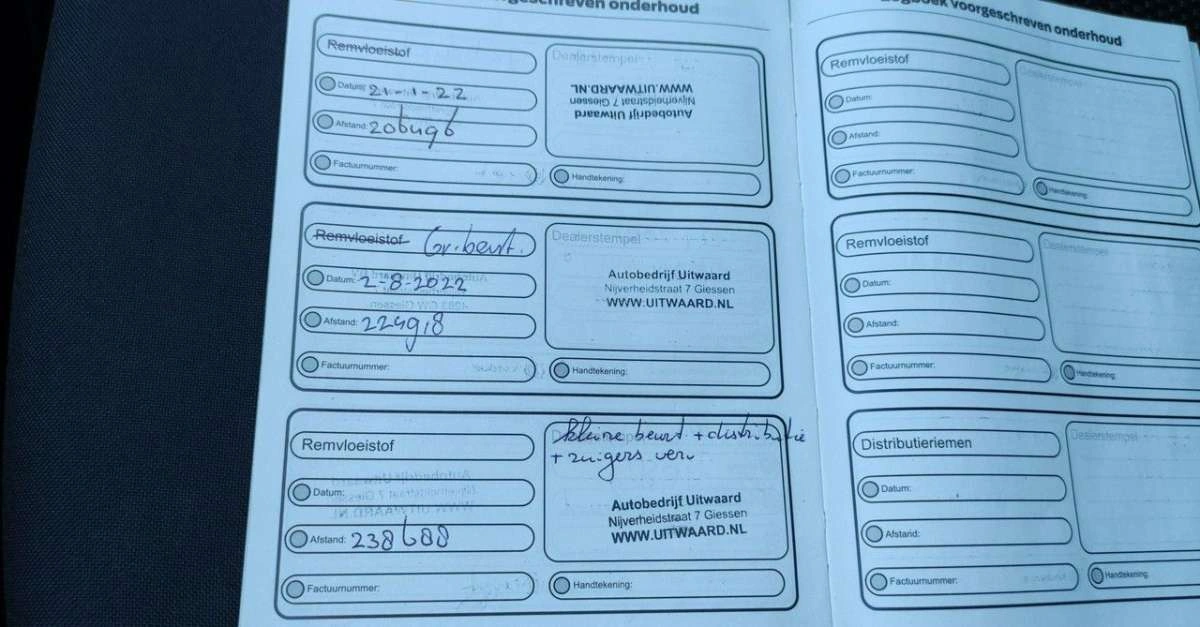 rgeschreven onderhoud
Remvloeistof
Datum: 21-1-22
Afstand: 206496
Factuurnummer:
Dealerstempel
Autobedrijf Uitwaard
Nijverheidstraat 7 Giessen
WWW.UITWAARD.NL
Handtekening:
Remvloeistof Gr. beurt.
Datum: 2-8-2022
Afstand:
Factuurnummer:
Dealerstempel
Autobedrijf Uitwaard
Nijverheidstraat 7 Giessen
WWW.UITWAARD.NL
Handtekening:
Remvloeistof
Datum:
Afstand: 238688
Factuurnummer:
kleine beurt + distributie
+ zuigers
Autobedrijf Uitwaard
Nijverheidstraat 7 Giessen
WWW.UITWAARD.NL
Handtekening:
voorgeschreven onderhoud
Remvloeistof
Datum:
Afstand:
Factuurnummer:
Dealerstempel
Handtekening:
Remvloeistof
Datum:
Afstand:
Factuurnummer:
Dealerstempel
Handtekening:
Distributieriemen
Datum:
Afstand:
Factuurnummer:
Dealerstempel
Handtekening: